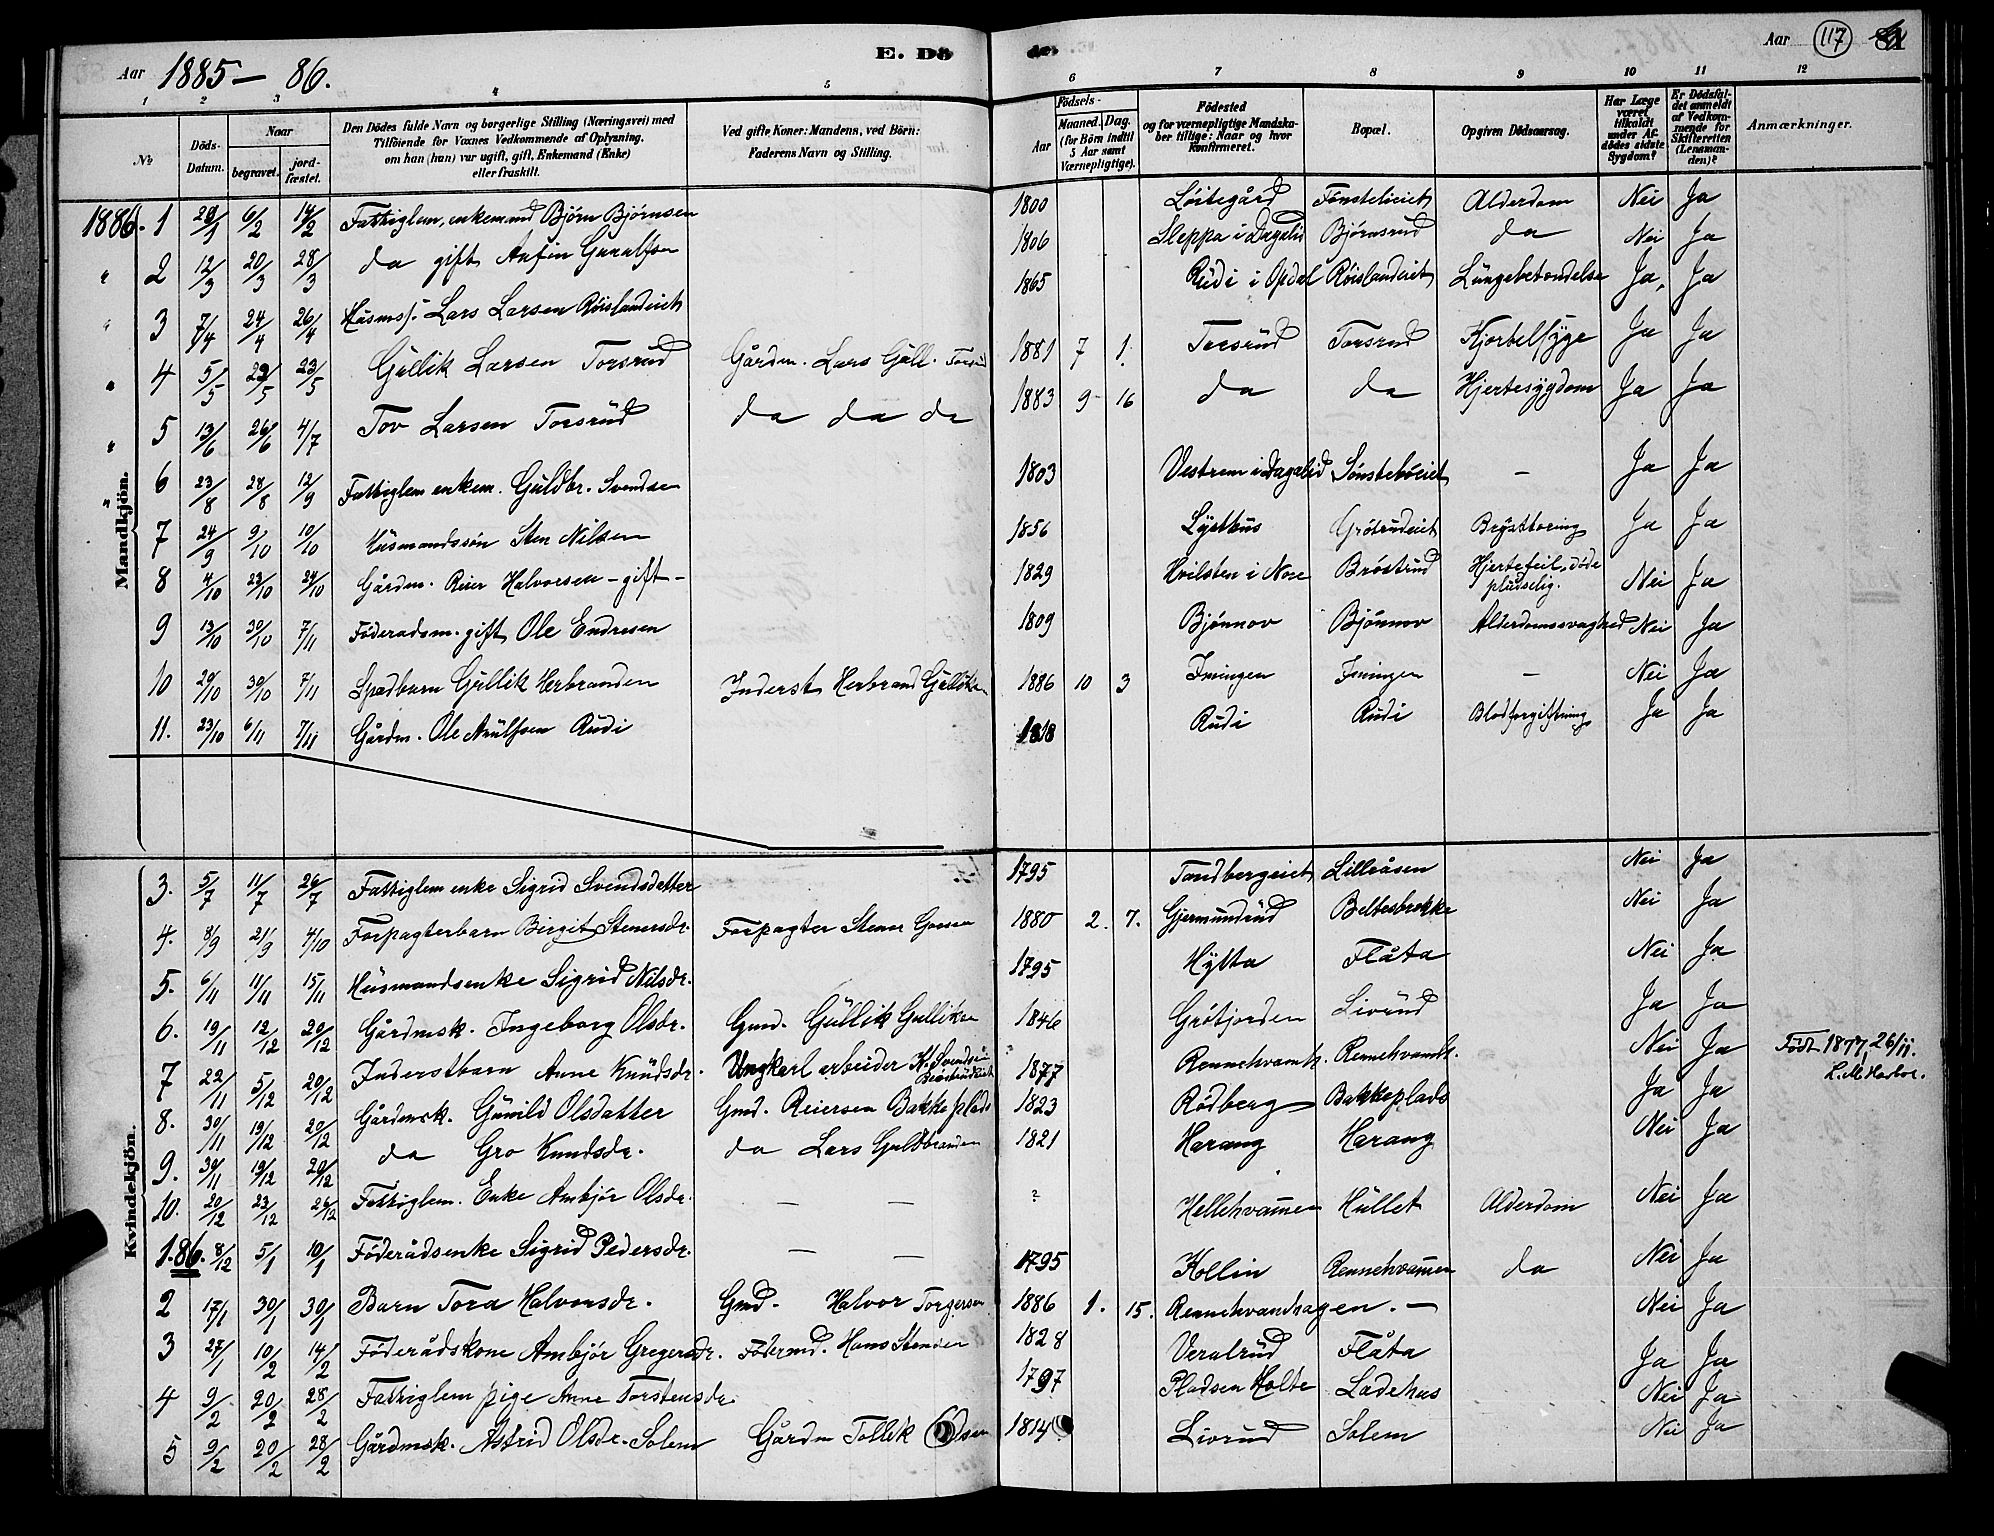 Aar 1885 — 86. E. Dö
de. Aar 117 81
1 2 3 4 5 6 7 8 9 10 11 12
No
Döds-Datum.
Naar
begravet.
jord-fæstet.
Den Dödes fulde Navn og borgerlige Stilling (Næringsvei) med
Tilföiende for Voxnes Vedkommende af Oplysning.
om han (hun) var ugift, gift, Enkemand (Enke)
eller fraskilt.
Ved gifte Koner: Mandens, ved Börn:
Faderens Navn og Stilling.
Födsels-
Aar
Maaned. Dag.
(for Börn indtil
5 Aar samt
Værnepligtige).
Födested
og for værnepligtige Mandska-
ber tillige: Naar og hvor
Konfirmeret.
Bopæl.
Opgiven Dödsaarsag.
Har Læge
været
tilkaldt
under Af-
dödes sidste
Sygdom?
Er Dödsfal-
det anmeldt
af Vedkom-
mende for
Skifteretten
(Lensman-
den)?
Anmærkninger.
Mandkjön.
1886. 1 6/2 14/2 Fattiglem, enkemand Björn Björnsen 1800 Löitegård Alderdom Nei Ja
" 2 12/3 20/3 28/3 da gift 1806 Sleppa i Dagalid Björnsrud da Nei Ja
" 3 7/4 24/4 26/4 Husms: Lars Larsen Röislandeiet 1865 Rudi i Opdal Röislandeiet Lungebetændelse Ja, Ja
" 4 5/5 23/5 Gullik Larsen Torsrud Gårdm. Lars Gull. 1881 7 1. Torsrud Torsrud Kjertelsyge Ja Ja
" 5 13/6 26/6 4/7 Tov Larsen Torsrud da da da 1883 9 16 da da Hjertesygdom Ja Ja
" 6 23/8 28/8 12/9 Fattiglem enkem. Guldbr. Svendsen 1803 Vestrem i Dagalid Sönsteböeiet — Ja Ja
7 24/9 9/10 10/10 Husmandssön Sten Nilsen 1856 Lysthus Grötrudeiet Brysttæring Ja Ja
8 4/10 23/10 24/10 Gårdm. Reier Halvorsen - gift - 1829 Hvilsten i Nore Bröstrud Hjertefeil, döde
pludselig. Nei Ja
9 13/10 30/10 7/11 Föderadsm. gift Ole Endresen 1809 Bjönnov Bjönnov Alderdomssvaghed Nei Ja
10 29/10 30/10 7/11 Spædbarn Gullik Herbrandsen Inderst Herbrand Gulliksen 1886 10 3 — Nei Ja
11. 23/10 6/11 7/11 Gårdm. Ole Rudi 1818 Rudi Rudi Blodforgiftning Ja Ja
Kvindekjön.
3. 5/7 11/7 26/7 Fattiglem enke Sigrid Svendsdatter 1795 Tandbergeiet Lilleåsen Nei Ja
4. 8/9 21/9 4/10 Forpagterbarn Birgit Stenersdr. Forpagter Stener 1880 2. 7. Gjermundrud Beltesbrekke Nei Ja
5. 6/11 11/11 15/11 Husmandsenke Sigrid Nilsdr. 1795 Hytta Flåta Nei Ja
6. 19/11 12/12 20/12 Gårdmsk. Ingeborg Olsdr. Gmd. Gullik Gulliksen 1846 Grötjorden Livrud Ja Ja
7 22/11 5/12 20/12 Inderstbarn Anne Knudsdr. Ungkarl arbeider K. Svendsen 1877 Rennehvamb. Rennehvamb. Nei Ja Födt 1877, 26/11.
L. M. Harboe.
8. 30/11 19/12 20/12 Gårdmsk. Gunild Olsdatter Gmd. Reiersen Bakkeplads 1823 Rödberg Bakkeplads Ja Ja
9. 30/11 19/12 20/12 da Gro Knudsdr. da Lars Guldbrandsen 1821 Harang Harang Nei Ja
10. 20/12 23/12 26/12 Fattiglem. Enke Ambjör Olsdr. — — ? Hellehvammen Hullet Alderdom Nei Ja
1. 86. 8/12 5/1 10/1 Föderådsenke Sigrid Pedersdr. — — 1795 Kollin Rennehvammen da Nei Ja
2 17/1 30/1 30/1 Barn Tora Halvorsdr. Gmd. Halvor Torgersen 1886 1. 15. Rennehvamhagen. — Nei Ja
3 27/1 10/2 14/2 Föderådskone Ambjör Gregersdr. Födermd. Hans Stensen 1828 Veralrud Flåta Ja Ja
4 9/2 20/2 28/2 Fattiglem pige Anne Torstensdr. 1797 Pladsen Holte Ladehus Nei Ja
5 9/2 20/2 28/2 Gårdmsk. Astrid Olsdr. Solem Gårdm Tollik Olsen 1814 Livrud Solem Nei Ja